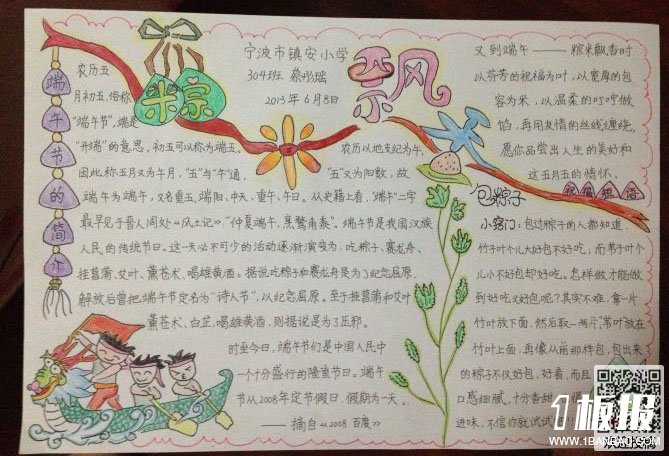 粽
飘
宁波市镇安小学
304班 蔡彤瑞
2013年6月8日
端午节的简介
农历五
月初五,俗称
"端午节",端是
"开端"的意思,初五可以称为端五。
农历以地支纪为午,
因此称五月又为午月,"五"与"午"通,
"五"又为阳数,故
端午为端午,又名重五、端阳、中天、重午、午日。从史籍上看,"端午"二字
最早见于晋人周处《风土记》:"仲夏端午,烹鹜角黍"。端午节是我国汉族
人民的传统节日。这一天必不可少的活动逐渐演变为:吃粽子、赛龙舟、
挂菖蒲、艾叶、薰苍术、喝雄黄酒。据说吃粽子和赛龙舟是为了纪念屈原,
解放后曾把端午节定名为"诗人节",以纪念屈原。至于挂菖蒲和艾叶
薰苍术、白芷、喝雄黄酒,则据说是为了压邪。
时至今日,端午节们是中国人民中
一个十分盛行的隆重节日。端午
节从2008年定节假日,假期为一天。
——摘自《2008 百度》
又到端午——粽米飘香时
以芬芳的祝福为叶,以宽厚的包
容为米,以温柔的叮咛做
馅,再用友情的丝线缠绕,
愿你品尝出人生的美好和
这五月五的情怀。
祝福短语
包粽子
小窍门:包过粽子的人都知道,
竹子叶个儿大好包不好吃;而苇子叶个
儿小不好包却好吃。怎样做才能做
到好吃又好包呢?其实不难,拿一片
竹叶放下面,然后取一两片苇叶放在
竹叶上面,再像从前那样包,包出来
的粽子不仅好包,好看,而且
口感细腻,十分香甜
进味,不信你就试试
1板报
WWW.1BANBAO.COM
欢迎投稿